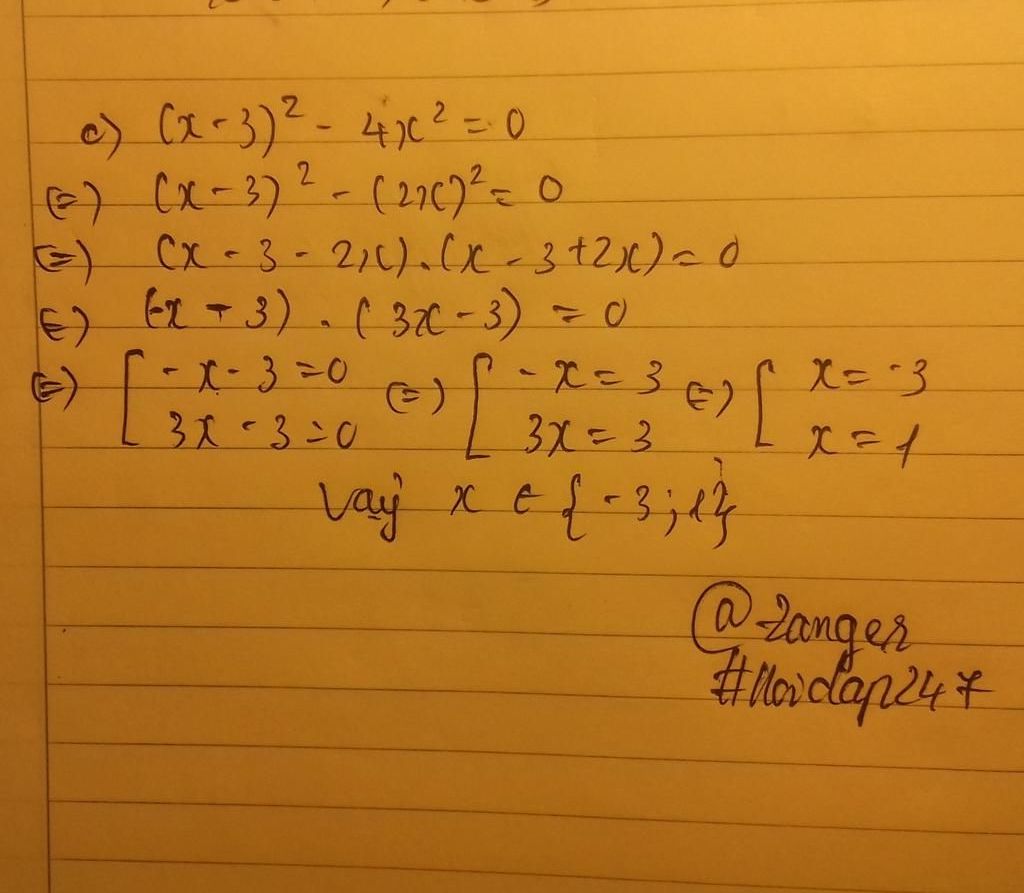 c) (x-3)² - 4x² = 0
(=) (x-3)² - (2x)² = 0
(=) (x - 3 - 2x).(x - 3 + 2x) = 0
(=) (-x - 3) . (3x - 3) = 0
(=) [ -x - 3 = 0 (=) [ -x = 3 (=) [ x = -3
3x - 3 = 0 3x = 3 x = 1
Vậy x ∈ {-3; 1}
@zanger
#Hoidap247